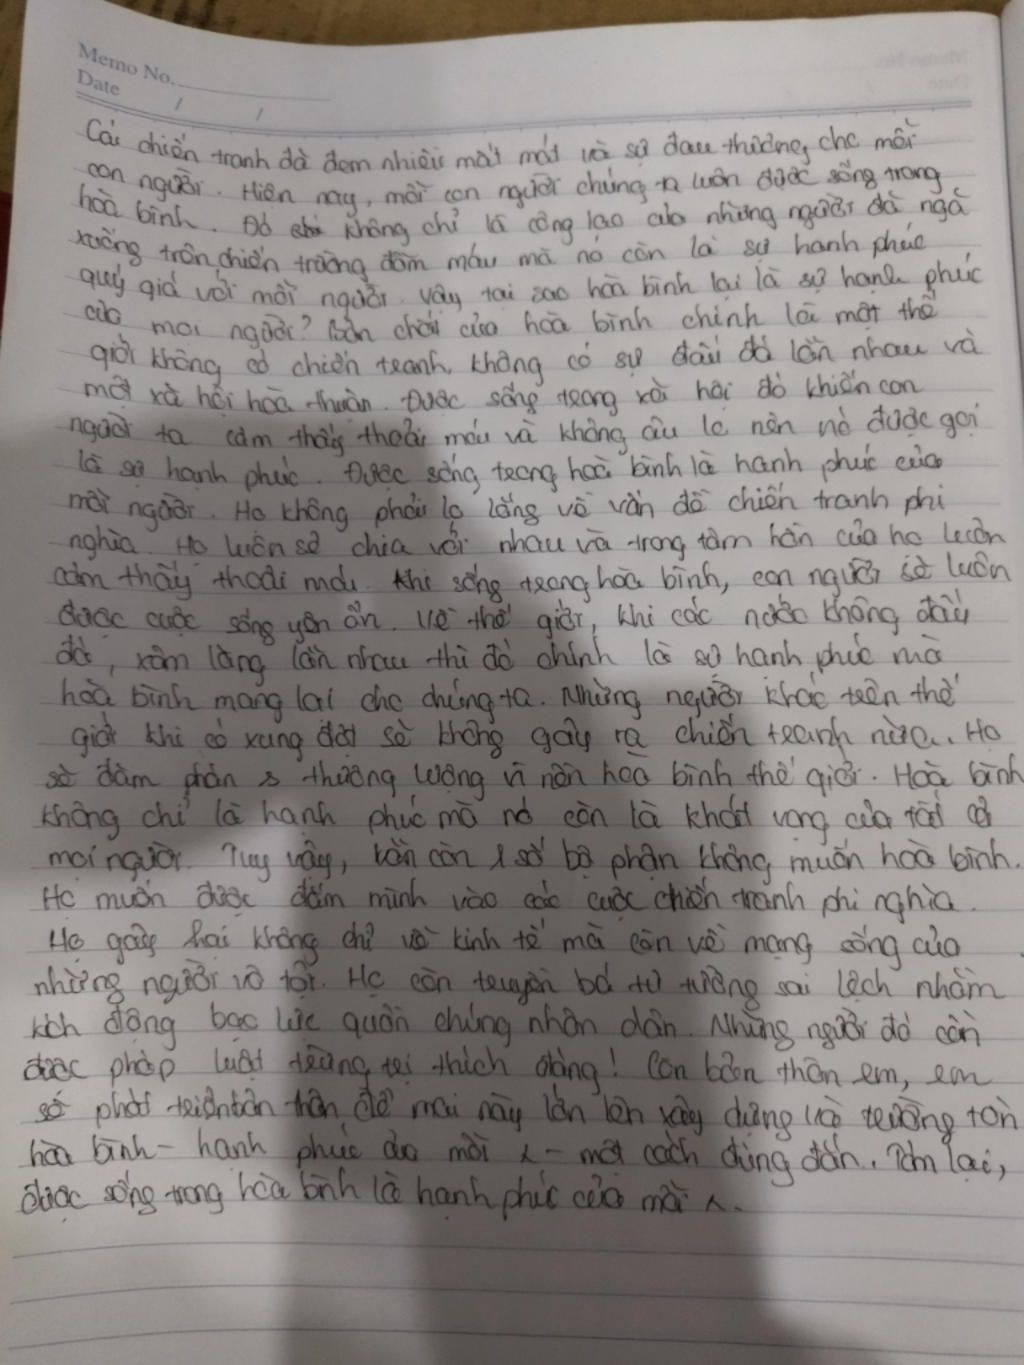 Memo No.
Date / /
Cái chiến tranh đã đem nhiều mất mát và sự đau thương cho mỗi
con người. Hiện nay, mỗi con người chúng ta luôn được sống trong
hoà bình. Đó không chỉ là công lao của những người đã ngã
xuống trên chiến trường đẫm máu mà nó còn là sự hạnh phúc
quý giá với mỗi người. Vậy tại sao hoà bình lại là sự hạnh phúc
của mọi người? Bản chất của hoà bình chính là một thế
giới không có chiến tranh, không có sự đấu đá lẫn nhau và
một xã hội hoà thuận. Được sống trong xã hội đó khiến con
người ta cảm thấy thoải mái và không âu lo nên nó được gọi
là sự hạnh phúc. Được sống trong hoà bình là hạnh phúc của
mỗi người. Họ không phải lo lắng về vấn đề chiến tranh phi
nghĩa. Họ luôn sẻ chia với nhau và trong tâm hồn của họ luôn
cảm thấy thoải mái. Khi sống trong hoà bình, con người sẽ luôn
được cuộc sống yên ổn. Về thế giới, khi các nước không đấu
đá, xâm lăng lẫn nhau thì đó chính là sự hạnh phúc mà
hoà bình mang lại cho chúng ta. Những người khác trên thế
giới khi có xung đột sẽ không gây ra chiến tranh nữa. Họ
sẽ đàm phán thương lượng vì nền hoà bình thế giới. Hoà bình
không chỉ là hạnh phúc mà nó còn là khát vọng của tất cả
mọi người. Tuy vậy, vẫn còn 1 số bộ phận không muốn hoà bình.
Họ muốn được đắm mình vào các cuộc chiến tranh phi nghĩa.
Họ gây hại không chỉ về kinh tế mà còn về mạng sống của
những người vô tội. Họ còn truyền bá tư tưởng sai lệch nhằm
kích động bạo lực quần chúng nhân dân. Những người đó cần
được pháp luật trừng trị thích đáng! Còn bản thân em, em
sẽ phát triển bản thân để mai này lớn lên xây dựng và trường tồn
hoà bình - hạnh phúc của mỗi - một cách đúng đắn. Tóm lại,
được sống trong hòa bình là hạnh phúc của mỗi